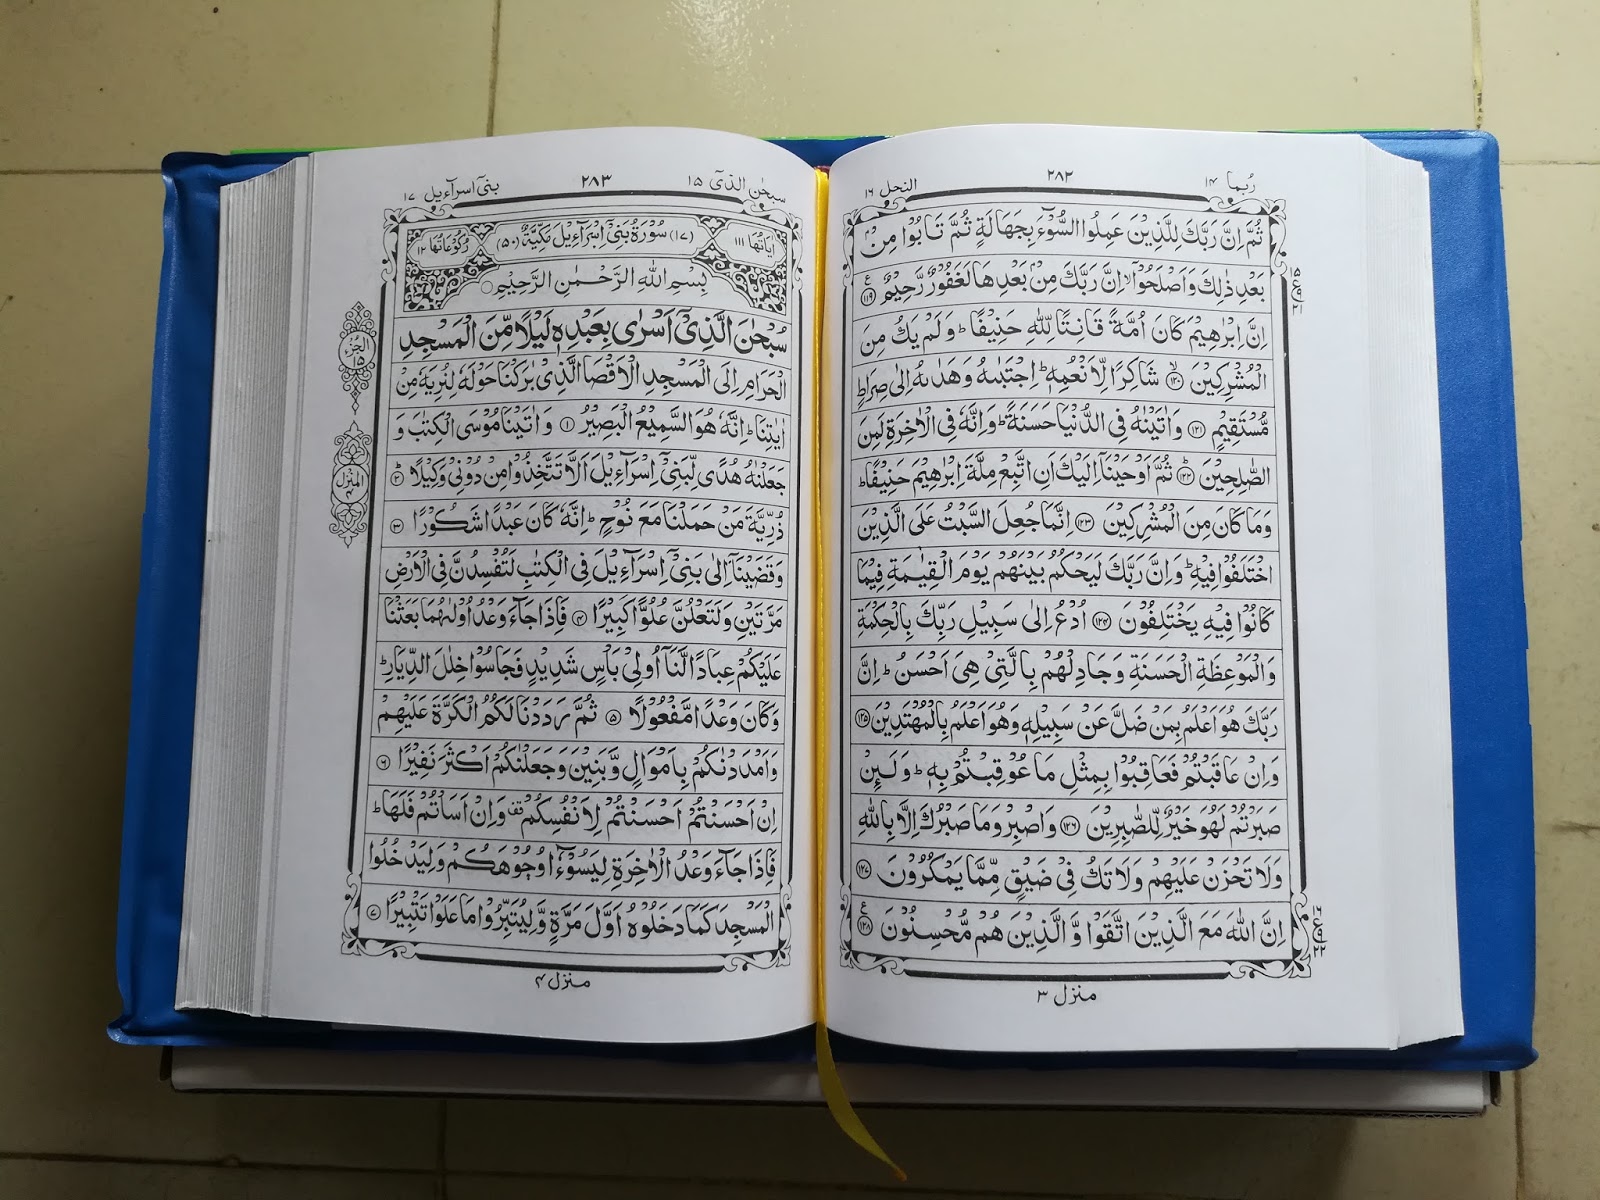 رُبَمَا ١٤
٢٨٢
النحل ١٦
ثُمَّ اِنَّ رَبَّكَ لِلَّذِيْنَ عَمِلُوا السُّوْٓءَ بِجَهَالَةٍ ثُمَّ تَابُوْا مِنْۢ
بَعْدِ ذٰلِكَ وَاَصْلَحُوْۤا ۙ اِنَّ رَبَّكَ مِنْۢ بَعْدِهَا لَغَفُوْرٌ رَّحِيْمٌ ﴿١١٩﴾
اِنَّ اِبْرٰهِيْمَ كَانَ اُمَّةً قَانِتًا لِّلّٰهِ حَنِيْفًا ؕ وَلَمْ يَكُ مِنَ
الْمُشْرِكِيْنَ ۙ﴿١٢٠﴾ شَاكِرًا لِّاَنْعُمِهٖ ؕ اِجْتَبٰىهُ وَهَدٰىهُ اِلٰى صِرَاطٍ
مُّسْتَقِيْمٍ ﴿١٢١﴾ وَاٰتَيْنٰهُ فِى الدُّنْيَا حَسَنَةً ؕ وَاِنَّهٗ فِى الْاٰخِرَةِ لَمِنَ
الصّٰلِحِيْنَ ؕ﴿١٢٢﴾ ثُمَّ اَوْحَيْنَاۤ اِلَيْكَ اَنِ اتَّبِعْ مِلَّةَ اِبْرٰهِيْمَ حَنِيْفًا ؕ
وَمَا كَانَ مِنَ الْمُشْرِكِيْنَ ﴿١٢٣﴾ اِنَّمَا جُعِلَ السَّبْتُ عَلَى الَّذِيْنَ
اخْتَلَفُوْا فِيْهِ ؕ وَاِنَّ رَبَّكَ لَيَحْكُمُ بَيْنَهُمْ يَوْمَ الْقِيٰمَةِ فِيْمَا
كَانُوْا فِيْهِ يَخْتَلِفُوْنَ ﴿١٢٤﴾ اُدْعُ اِلٰى سَبِيْلِ رَبِّكَ بِالْحِكْمَةِ
وَالْمَوْعِظَةِ الْحَسَنَةِ وَجَادِلْهُمْ بِالَّتِىْ هِىَ اَحْسَنُ ؕ اِنَّ
رَبَّكَ هُوَ اَعْلَمُ بِمَنْ ضَلَّ عَنْ سَبِيْلِهٖ وَهُوَ اَعْلَمُ بِالْمُهْتَدِيْنَ ﴿١٢٥﴾
وَاِنْ عَاقَبْتُمْ فَعَاقِبُوْا بِمِثْلِ مَا عُوْقِبْتُمْ بِهٖ ؕ وَلَئِنْ
صَبَرْتُمْ لَهُوَ خَيْرٌ لِّلصّٰبِرِيْنَ ﴿١٢٦﴾ وَاصْبِرْ وَمَا صَبْرُكَ اِلَّا بِاللّٰهِ
وَلَا تَحْزَنْ عَلَيْهِمْ وَلَا تَكُ فِىْ ضَيْقٍ مِّمَّا يَمْكُرُوْنَ ﴿١٢٧﴾
اِنَّ اللّٰهَ مَعَ الَّذِيْنَ اتَّقَوْا وَّالَّذِيْنَ هُمْ مُّحْسِنُوْنَ ﴿١٢٨﴾
منزل ٣
سبحٰن الذىٓ ١٥
٢٨٣
بنىٓ اسرآءيل ١٧
اٰيَاتُهَا ١١١
(١٧) سُوْرَةُ بَنِىْٓ اِسْرَآءِيْلَ مَكِّيَّةٌ (٥٠)
رُكُوْعَاتُهَا ١٢
بِسْمِ اللّٰهِ الرَّحْمٰنِ الرَّحِيْمِ
الجُزْء ١٥
سُبْحٰنَ الَّذِىْٓ اَسْرٰى بِعَبْدِهٖ لَيْلًا مِّنَ الْمَسْجِدِ
الْحَرَامِ اِلَى الْمَسْجِدِ الْاَقْصَا الَّذِىْ بٰرَكْنَا حَوْلَهٗ لِنُرِيَهٗ مِنْ
اٰيٰتِنَا ؕ اِنَّهٗ هُوَ السَّمِيْعُ الْبَصِيْرُ ﴿١﴾ وَاٰتَيْنَا مُوْسَى الْكِتٰبَ وَ
جَعَلْنٰهُ هُدًى لِّبَنِىْٓ اِسْرَآءِيْلَ اَلَّا تَتَّخِذُوْا مِنْ دُوْنِىْ وَكِيْلًا ؕ﴿٢﴾
المَنْزِل ٤
ذُرِّيَّةَ مَنْ حَمَلْنَا مَعَ نُوْحٍ ؕ اِنَّهٗ كَانَ عَبْدًا شَكُوْرًا ﴿٣﴾
وَقَضَيْنَاۤ اِلٰى بَنِىْٓ اِسْرَآءِيْلَ فِى الْكِتٰبِ لَتُفْسِدُنَّ فِى الْاَرْضِ
مَرَّتَيْنِ وَلَتَعْلُنَّ عُلُوًّا كَبِيْرًا ﴿٤﴾ فَاِذَا جَآءَ وَعْدُ اُوْلٰىهُمَا بَعَثْنَا
عَلَيْكُمْ عِبَادًا لَّنَاۤ اُولِىْ بَاْسٍ شَدِيْدٍ فَجَاسُوْا خِلٰلَ الدِّيَارِ ؕ
وَكَانَ وَعْدًا مَّفْعُوْلًا ﴿٥﴾ ثُمَّ رَدَدْنَا لَكُمُ الْكَرَّةَ عَلَيْهِمْ
وَاَمْدَدْنٰكُمْ بِاَمْوَالٍ وَّبَنِيْنَ وَجَعَلْنٰكُمْ اَكْثَرَ نَفِيْرًا ﴿٦﴾
اِنْ اَحْسَنْتُمْ اَحْسَنْتُمْ لِاَنْفُسِكُمْ ۫ وَاِنْ اَسَاْتُمْ فَلَهَا ؕ
فَاِذَا جَآءَ وَعْدُ الْاٰخِرَةِ لِيَسُوْٓءٗا وُجُوْهَكُمْ وَلِيَدْخُلُوا
الْمَسْجِدَ كَمَا دَخَلُوْهُ اَوَّلَ مَرَّةٍ وَّلِيُتَبِّرُوْا مَا عَلَوْا تَتْبِيْرًا ﴿٧﴾
منزل ٤